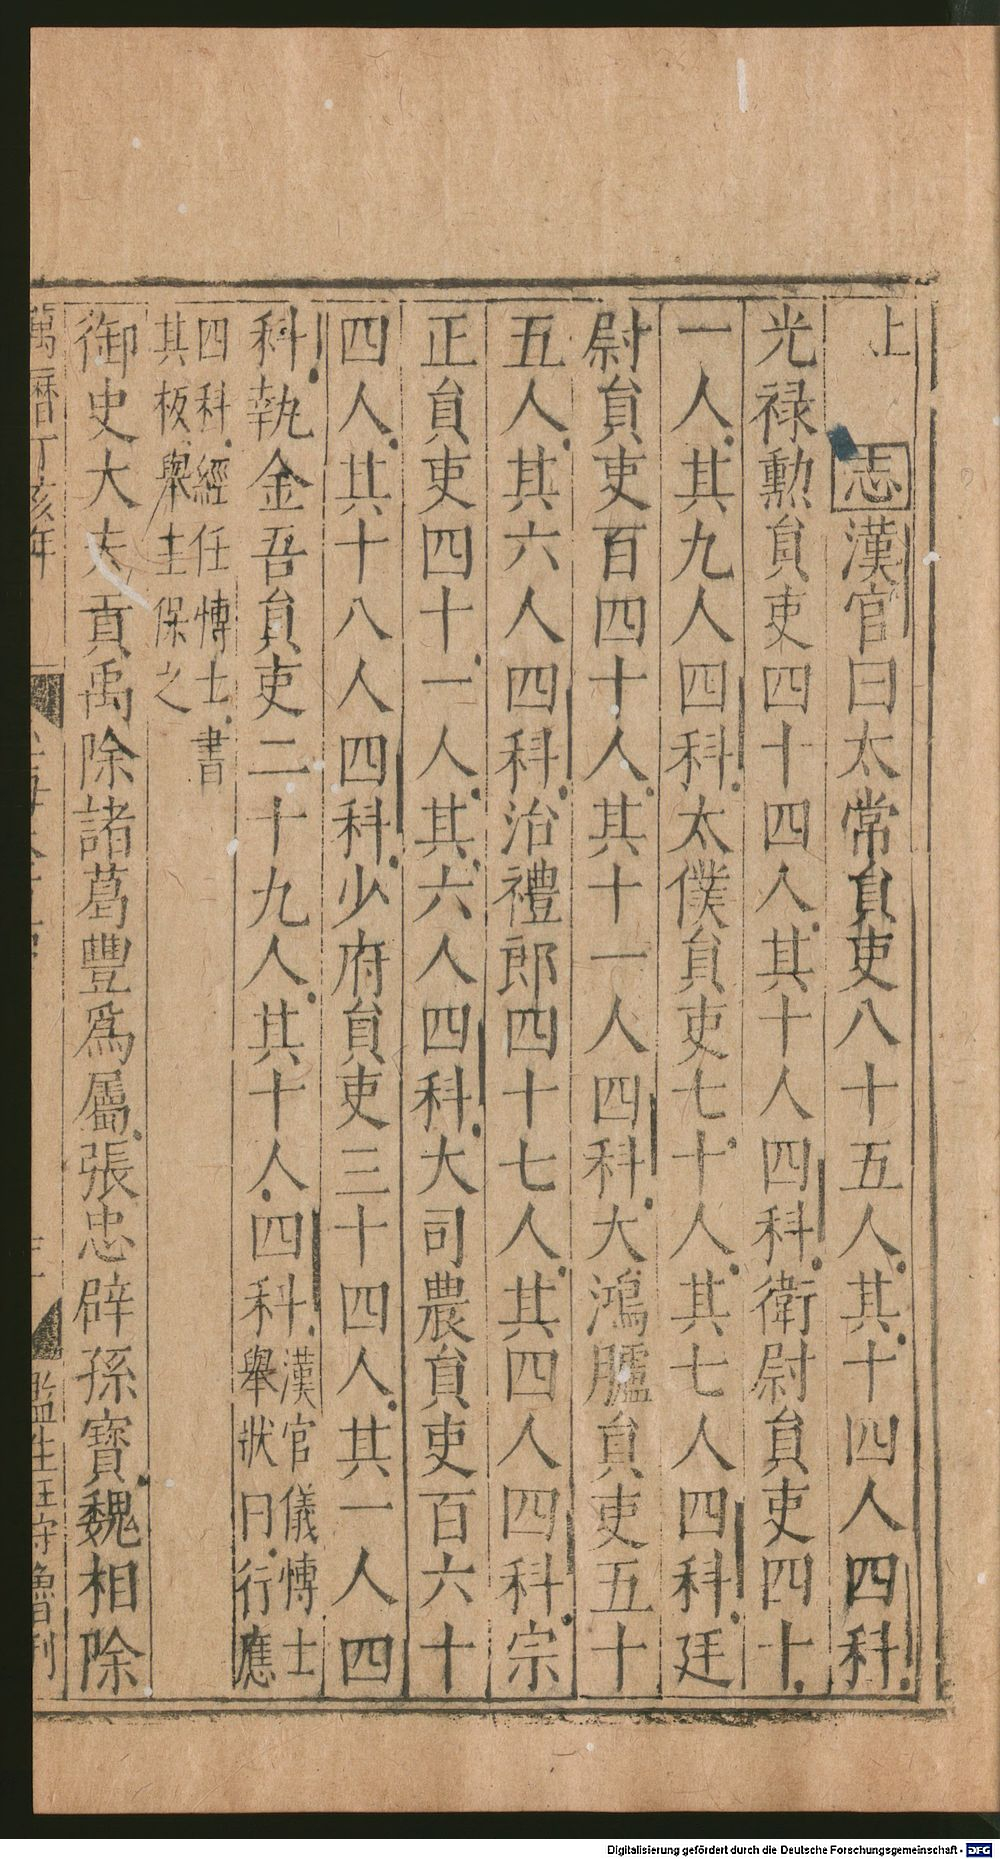 上　志漢官曰太常負吏八十五人其十四人四科
光禄勲負吏四十四人其十人四科衛尉負吏四十
一人其九人四科太僕負吏七十人其七人四科廷
尉負吏百四十人其十一人四科大鴻臚負吏五十
五人其六人四科治禮郎四十七人其四人四科宗
正負吏四十一人其六人四科大司農負吏百六十
四人其十八人四科少府負吏三十四人其一人四
科執金吾負吏二十九人其十人四科漢官儀愽士
舉狀曰行應
四科經任愽士書
其板舉主保之
御史大夫貢禹除諸葛豐爲屬張忠辟孫寶魏相除
萬曆丁亥年
監生
刊
Digitalisierung gefördert durch die Deutsche Forschungsgemeinschaft - DFG